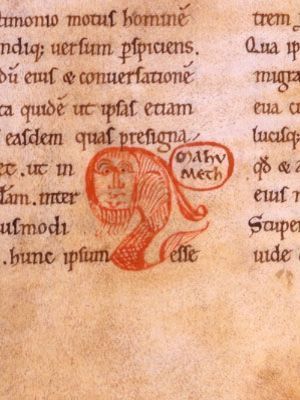 timonio motus hominē
ndiq; uersum pspiciens.
dū eius & conuersationē
ta quidē ut ipsas etiam
easdem quas presigna
et. ut in
inter
usmodi
. hunc ipsum esse
Mahu
Meth
trem
Qua ip
migra
eua c
lucisq;
qđ & a
eius n
Stupe
uide &